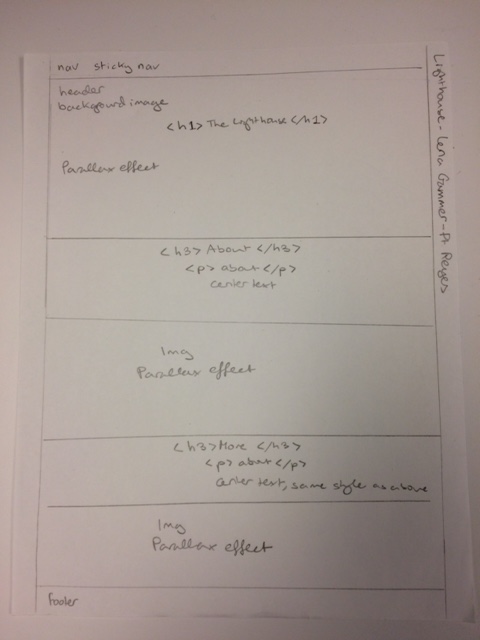 nav sticky nav
header
backgourd image
<h1> The Lighthouse </h1>
Parallax effect
<h3> About </h3>
<p> about </p>
center text
Img
Parallax effect
<h3> More </h3>
<p> about </p>
center text, same style as above
Img
Parallax effect
footer
Lighthouse - Lena Gammer - Pt Reyes